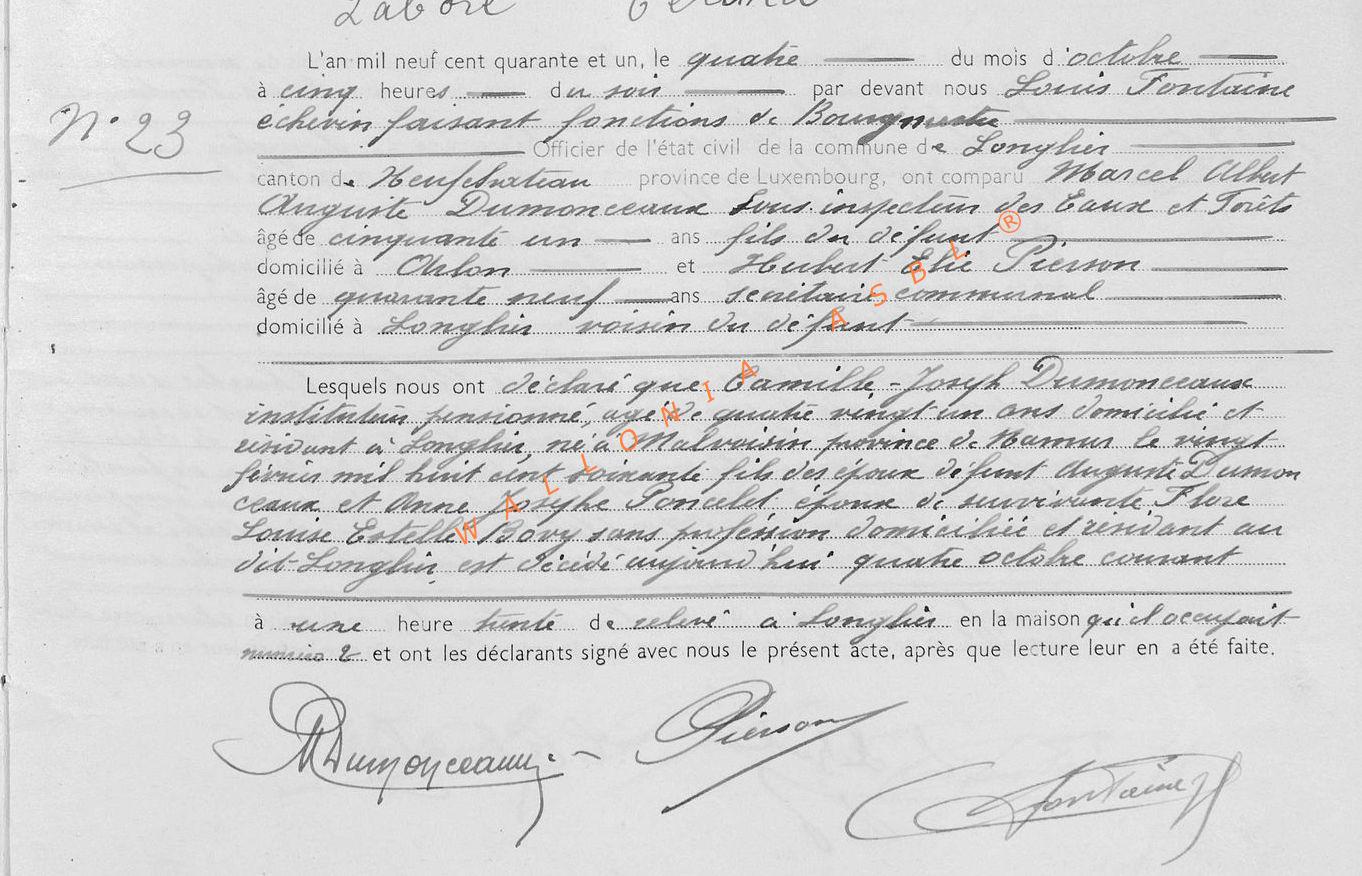 L'an mil neuf cent quarante et un, le quatre du mois d'octobre
à cinq heures du soir par devant nous Louis Fontaine
N° 23
échevin faisant fonctions de Bourgmestre
Officier de l'état civil de la commune de Longlier
canton de Neufchateau province de Luxembourg, ont comparu Marcel Albert
Auguste Dumonceaux sous-inspecteur des Eaux et Forêts
âgé de cinquante un ans fils du défunt
domicilié à Arlon et Hubert Elie Pierson
âgé de quarante neuf ans secrétaire communal
domicilié à Longlier voisin du défunt
Lesquels nous ont déclaré que Camille-Joseph Dumonceaux
instituteur pensionné, agé de quatre vingt un ans domicilié et
résidant à Longlier, né à Malvoisin province de Namur le vingt
février mil huit cent soixante fils des époux défunt Auguste Dumon
ceaux et Anne Josephe Poncelet, époux de survivante Flore
Louise Estelle Bovy sans profession domiciliée et résidant au
dit-Longlier, est décédé aujourd'hui quatre octobre courant
à une heure trente de relevé à Longlier en la maison qu'il occupait
numéro 2 et ont les déclarants signé avec nous le présent acte, après que lecture leur en a été faite.
MDumonceaux
Pierson
Fontaine
WALLONIA ASBL ®